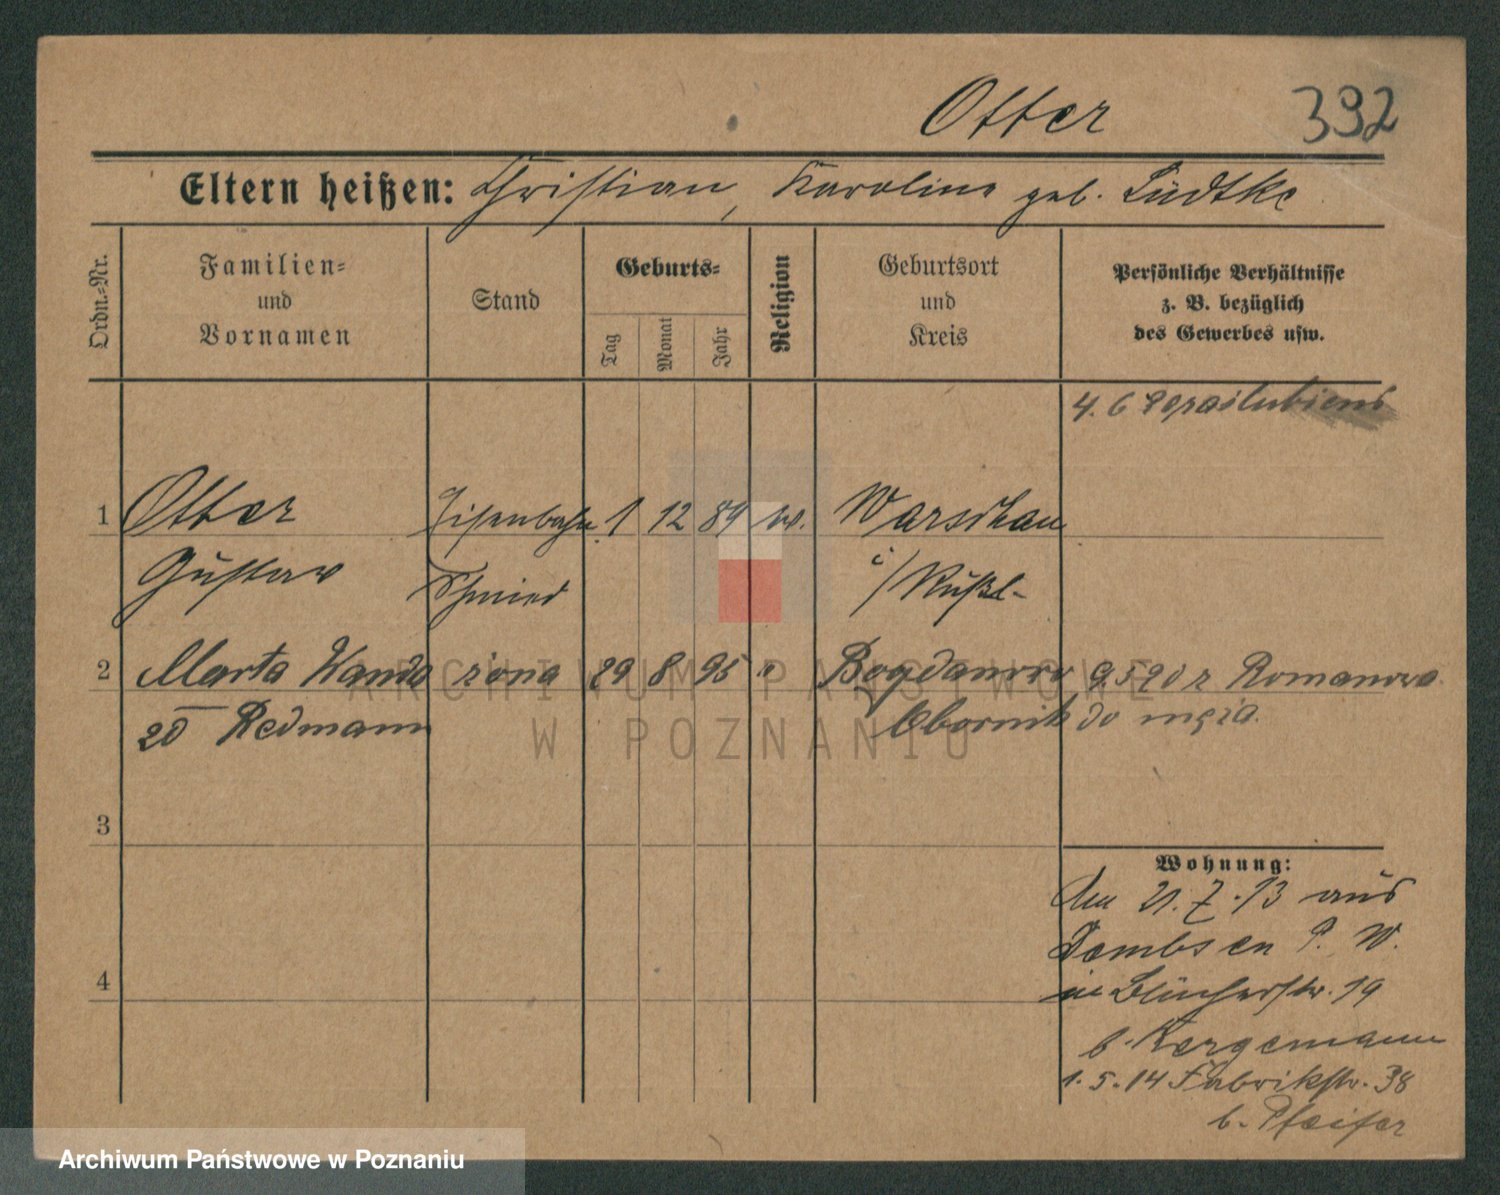 Otter 392
Eltern heißen: Christian, Karoline geb. Lüdtke
Ordn.-Nr.
Familien-
und
Vornamen
Stand
Geburts-
Tag
Monat
Jahr
Religion
Geburtsort
und
Kreis
Persönliche Verhältnisse
z. B. bezüglich
des Gewerbes usw.
4. 6
1 Otter Eisenbahn 1 12 89 ev. Warschau
Gustav Schmied i/Rußl-
2 Marta Wanda żona 29 8 95 " Bogdanowo 9 5 20 z Romanowa
zd Redmann Obornik do męża.
3
4
Wohnung:
Am 21. 7. 13 aus
Dembsen P. W.
in Blücherstr. 19
b. Kergemann
1. 5. 14 Fabrikstr. 38
b. Pfeifer
ARCHIWUM PAŃSTWOWE
W POZNANIU
Archiwum Państwowe w Poznaniu